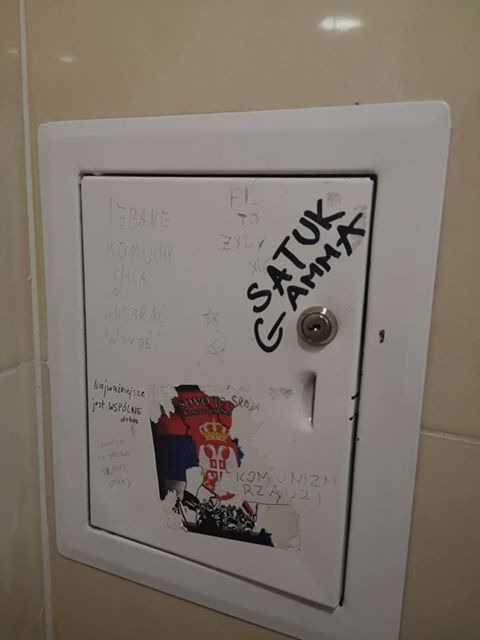 JEBANE
KOMUCHY
CHCĄ
MI
ODEBRAĆ
WolNOŚĆ
PIĆ
TO
ŻYCIE
SATUK
GAMMA
Najważniejsze
jest WSPÓLNE
dobro
KOSOVO JE SRBIJA
KOMUNIZM
RZĄDZI